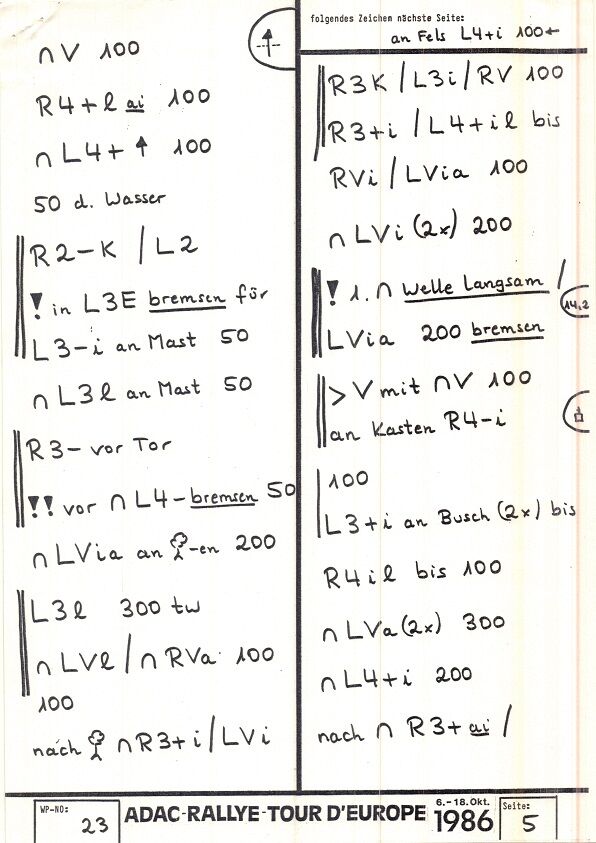 ∩ V 100
R4+l ai 100
∩ L4+ ↑ 100
50 d. Wasser
R2-K / L2
! in L3E bremsen für
L3-i an Mast 50
∩ L3l an Mast 50
R3- vor Tor
!! vor ∩ L4- bremsen 50
∩ LVia an -en 200
L3l 300 tw
∩ LVl / ∩ RVa 100
100
nach ∩ R3+i / LVi
folgendes Zeichen nächste Seite:
an Fels L4+i 100←
R3K / L3i / RV 100
R3+i / L4+il bis
RVi / LVia 100
∩ LVi (2x) 200
! 1. ∩ Welle Langsam /
14,2
LVia 200 bremsen
> V mit ∩V 100
an Kasten R4-i
100
L3+i an Busch (2x) bis
R4il bis 100
∩ LVa (2x) 300
∩ L4+i 200
nach ∩ R3+ ai /
WP-NO: 23
ADAC-RALLYE-TOUR D'EUROPE
6.-18.Okt. 1986
Seite: 5